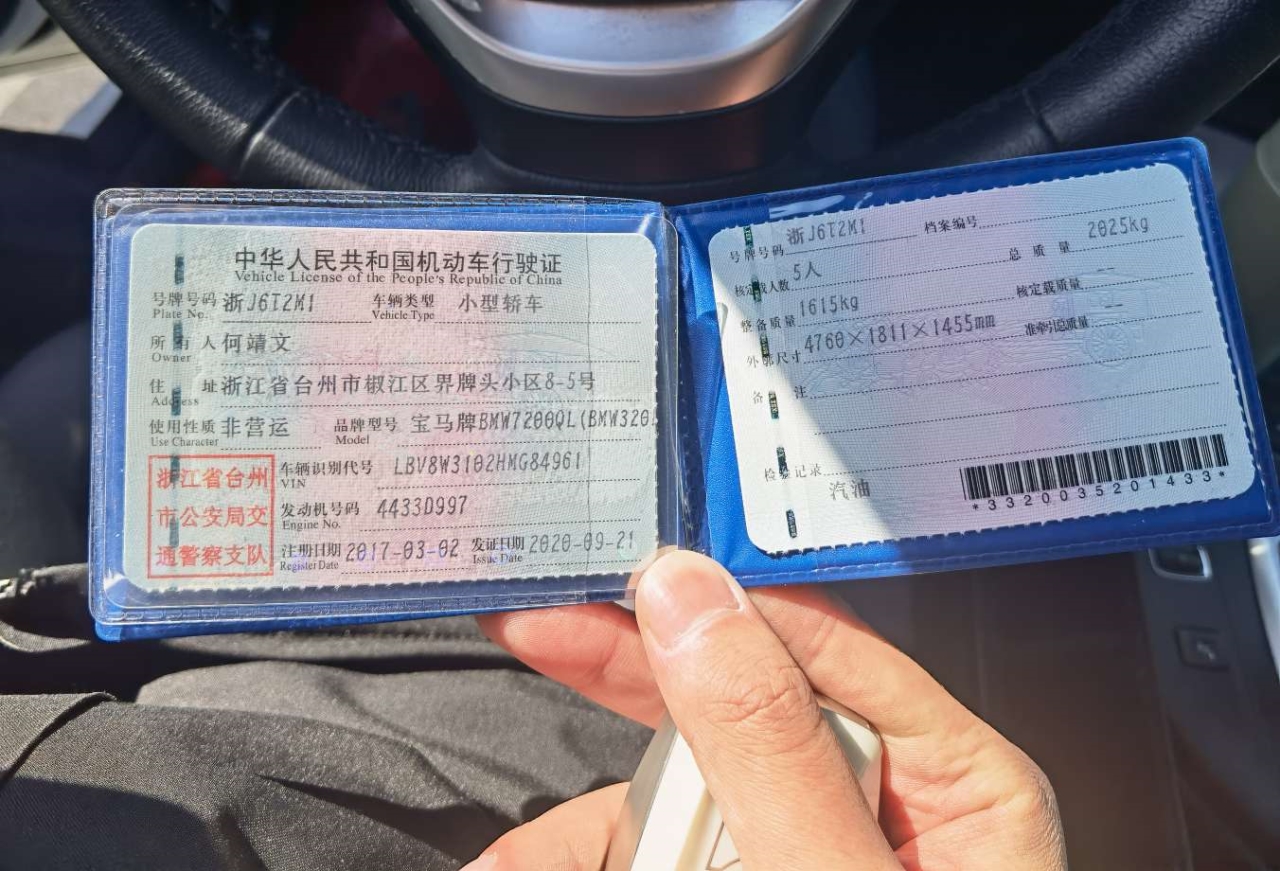 中华人民共和国机动车行驶证
Vehicle License of the People's Republic of China
号牌号码 浙J6T2M1 车辆类型 小型轿车
Plate No. Vehicle Type
所有人 何靖文
Owner
住址 浙江省台州市椒江区界牌头小区8-5号
Address
使用性质 非营运 品牌型号 宝马牌BMW7200QL(BMW320
Use Character Model
浙江省台州
市公安局交
通警察支队
车辆识别代号 LBV8W3102HMG84961
VIN
发动机号码 4433D997
Engine No.
注册日期 2017-03-02 发证日期 2020-09-21
Register Date Issue Date
号牌号码 浙J6T2M1 档案编号
核定载人数 5人 总质量 2025kg
整备质量 1615kg 核定载质量 --
外廓尺寸 4760×1811×1455mm 准牵引总质量 --
备注
检验记录
汽油
*3320035201433*